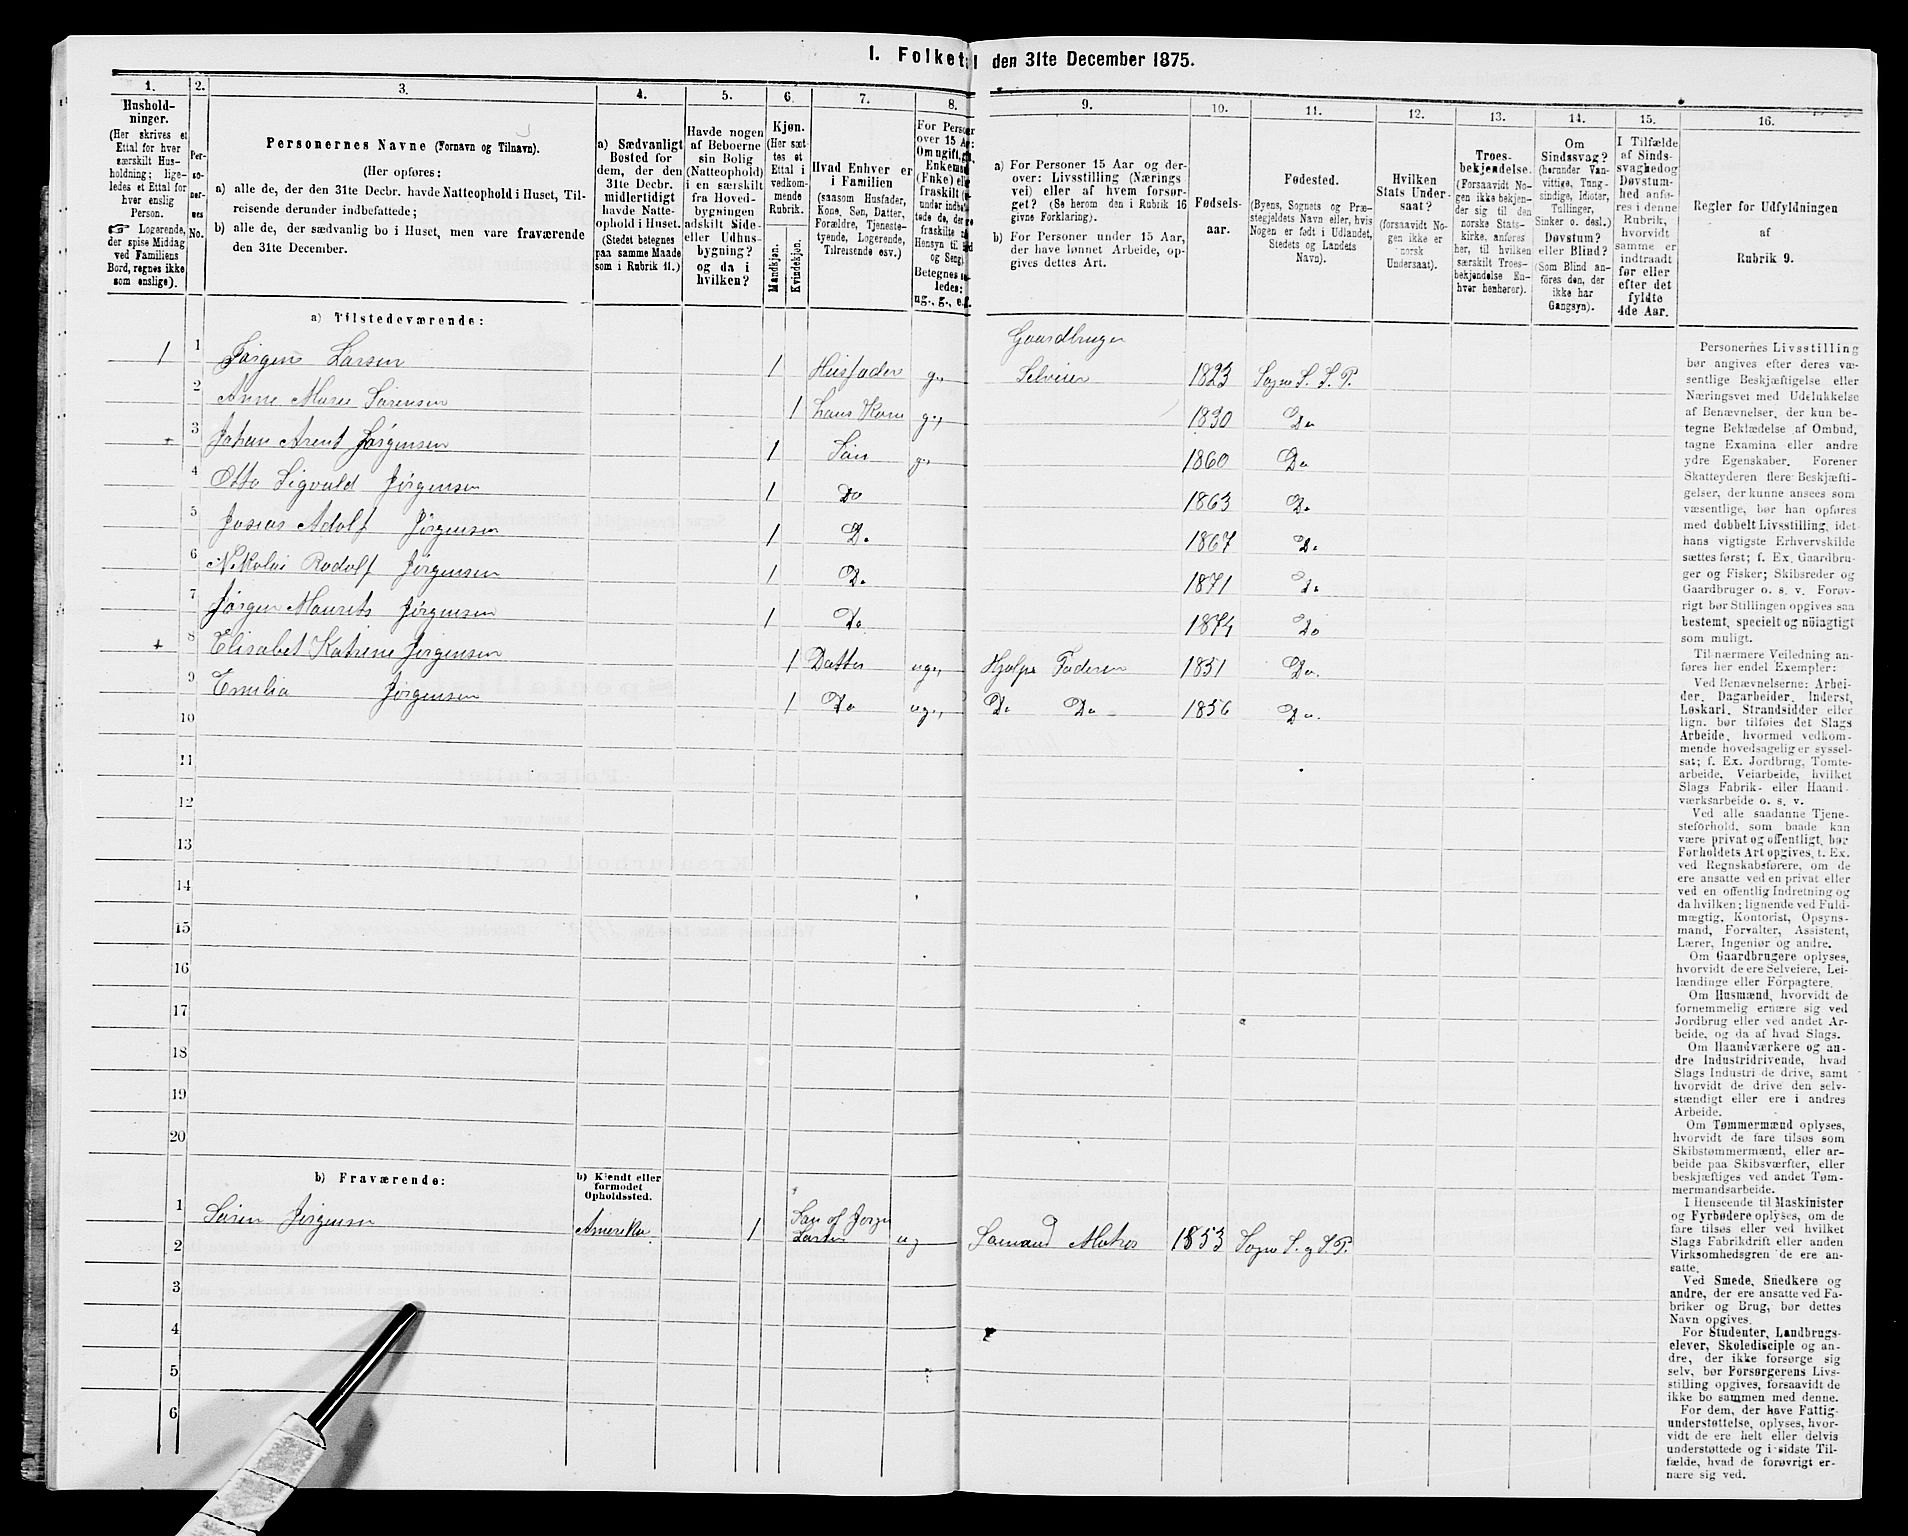 I. Folketal den 31te December 1875.
1.
Hushold-
ninger.
(Her skrives et
Ettal for hver
særskilt Hus-
holdning; lige-
ledes et Ettal for
hver enslig
Person.
Logerende,
der spise Middag
ved Familiens
Bord, regnes ikke
som enslige).
2.
Per-
so-
ner-
nes
No.
3.
Personernes Navne (Fornavn og Tilnavn).
(Her opføres:
a) alle de, der den 31te Decbr. havde Natteophold i Huset, Til-
reisende derunder indbefattede;
b) alle de, der sædvanlig bo i Huset, men vare fraværende
den 31te December.
4.
a) Sædvanligt
Bosted for
dem, der den
31te Decbr.
midlertidigt
havde Natte-
ophold i Huset.
(Stedet betegnes
paa samme Maade
som i Rubrik 11.)
5.
Havde nogen
af Beboerne
sin Bolig
(Natteophold)
i en særskilt
fra Hoved-
bygningen
adskilt Side-
eller Udhus-
bygning?
og da i
hvilken?
6.
Kjøn.
(Her sæt-
tes et
Ettal i
vedkom-
mende
Rubrik.
Mandkjøn.
Kvindekjøn.
7.
Hvad Enhver er
i Familien
(saasom Husfader,
Kone, Søn, Datter,
Forældre, Tjeneste-
tyende, Logerende,
Tilreisende osv.)
8.
For Personer
over 15 Aar:
Om ugift, gift,
Enkemand
(Enke) eller
fraskilt
Betegnes saa-
ledes:
ug., g., e.,f.
9.
a) For Personer 15 Aar og der-
over: Livsstilling (Nærings-
vei) eller af hvem forsør-
get? (Se herom den i Rubrik 16
givne Forklaring).
b) For Personer under 15 Aar,
der have lønnet Arbeide, op-
gives dettes Art.
10.
Fødsels-
aar.
11.
Fødested.
(Byens, Sognets og Præ-
stegjeldets Navn eller, hvis
Nogen er født i Udlandet,
Stedets og Landets
Navn).
12.
Hvilken
Stats Under-
saat?
(forsaavidt No-
gen ikke er
norsk
Undersaat).
13.
Troes-
bekjendelse.
(Forsaavidt No-
gen ikke bekjen-
der sig til den
norske Stats-
kirke, anføres
her, til hvilken
særskilt Troes-
bekjendelse En-
hver henhører).
14.
Om
Sindssvag?
(herunder Van-
vittige, Tung-
sindige, Idioter,
Tullinger,
Sinker o. desl.)
Døvstum?
eller Blind?
(Som Blind an-
føres den, der
ikke har
Gangsyn).
15.
I Tilfælde
af Sinds-
svaghed og
Døvstum-
hed anfø-
res i denne
Rubrik,
hvorvidt
samme er
indtraadt
før eller
efter det
fyldte
4de Aar.
16.
Regler for Udfyldningen
af
Rubrik 9.
a) Tilstedeværende:
1 1 Jørgen Larsen 1 Husfader g., Gaardbruger Selveier 1823 Sogne S. S. P.
2 Anne Marie Sørensen 1 hans Kone g., 1830 Do
+ 3 Johan Arent Jørgensen 1 Søn g., 1860 Do
4 Otto Sigvald Jørgensen 1 Do 1863 Do
5 Josias Adolf Jørgensen 1 Do 1867 Do
6 Nikolai Rudolf Jørgensen 1 Do 1871 Do
7 Jørgen Maurits Jørgensen 1 Do 1874 Do
+ 8 Elisabet Katrine Jørgensen 1 Datter ug., Hjelpe Faderen 1851 Do.
9 Emilia Jørgensen 1 Do ug., Do Do 1856 Do.
10
11
12
13
14
15
16
17
18
19
20
b) Fraværende:
b) Kjendt eller
formodet
Opholdssted.
1 Søren Jørgensen Amerika 1 Søn af Jørgen Larsen ug Sømand Matros 1853 Sogne S. og S. P.
2
3
4
5
6
Personernes Livsstilling
bør angives efter deres væ-
sentlige Beskjæftigelse eller
Næringsvei med Udelukkelse
af Benævnelser, der kun be-
tegne Beklædelse af Ombud,
tagne Examina eller andre
ydre Egenskaber. Forener
Skatteyderen flere Beskjæfti-
gelser, der kunne ansees som
væsentlige, bør han opføres
med dobbelt Livsstilling, idet
hans vigtigste Erhvervskilde
sættes først; f. Ex. Gaardbru-
ger og Fisker; Skibsreder og
Gaardbruger o. s. v. Forøv-
rigt bør Stillingen opgives saa
bestemt, specielt og nöiagtigt
som muligt.
Til nærmere Veiledning an-
føres her endel Exempler:
Ved Benævnelserne: Arbei-
der, Dagarbeider, Inderst,
Løskarl, Strandsidder eller
lign. bør tilføies det Slags
Arbeide, hvormed vedkom-
mende hovedsagelig er syssel-
sat; f. Ex. Jordbrug, Tomte-
arbeide, Veiarbeide, hvilket
Slags Fabrik- eller Haand-
værksarbeide o. s. v.
Ved alle saadanne Tjene-
steforhold, som baade kan
være privat og offentligt, bør
Forholdets Art opgives, f. Ex.
ved Regnskabsførere, om de
ere ansatte ved en privat eller
ved en offentlig Indretning og
da hvilken; lignende ved Fuld-
mægtig, Kontorist, Opsyns-
mand, Forvalter, Assistent,
Lærer, Ingeniør og andre.
Om Gaardbrugere oplyses,
hvorvidt de ere Selveiere, Lei-
lændinge eller Forpagtere.
Om Husmænd, hvorvidt de
fornemmelig ernære sig ved
Jordbrug eller ved andet Ar-
beide, og da af hvad Slags.
Om Haandværkere og an-
dre Industridrivende, hvad
Slags Industri de drive, samt
hvorvidt de drive den selv-
stændigt eller ere i andres
Arbeide.
Om Tømmermænd oplyses,
hvorvidt de fare tilsøs som
Skibstømmermænd, eller ar-
beide paa Skibsværfter, eller
beskjæftiges ved andet Tøm-
mermandsarbeide.
I Henseende til Maskinister
og Fyrbødere oplyses, om de
fare tilsøs eller ved hvilket
Slags Fabrikdrift eller anden
Virksomhedsgren de ere an-
satte.
Ved Smede, Snedkere og
andre, der ere ansatte ved Fa-
briker og Brug, bør dettes
Navn opgives.
For Studenter, Landbrugs-
elever, Skoledisciple og an-
dre, der ikke forsørge sig
selv, bør Forsørgerens Livs-
stilling opgives, forsaavidt de
ikke bo sammen med denne.
For dem, der have Fattig-
understøttelse, oplyses, hvor-
vidt de ere helt eller delvis
understøttede og i sidste Til-
fælde, hvad de forøvrigt er-
nære sig ved.